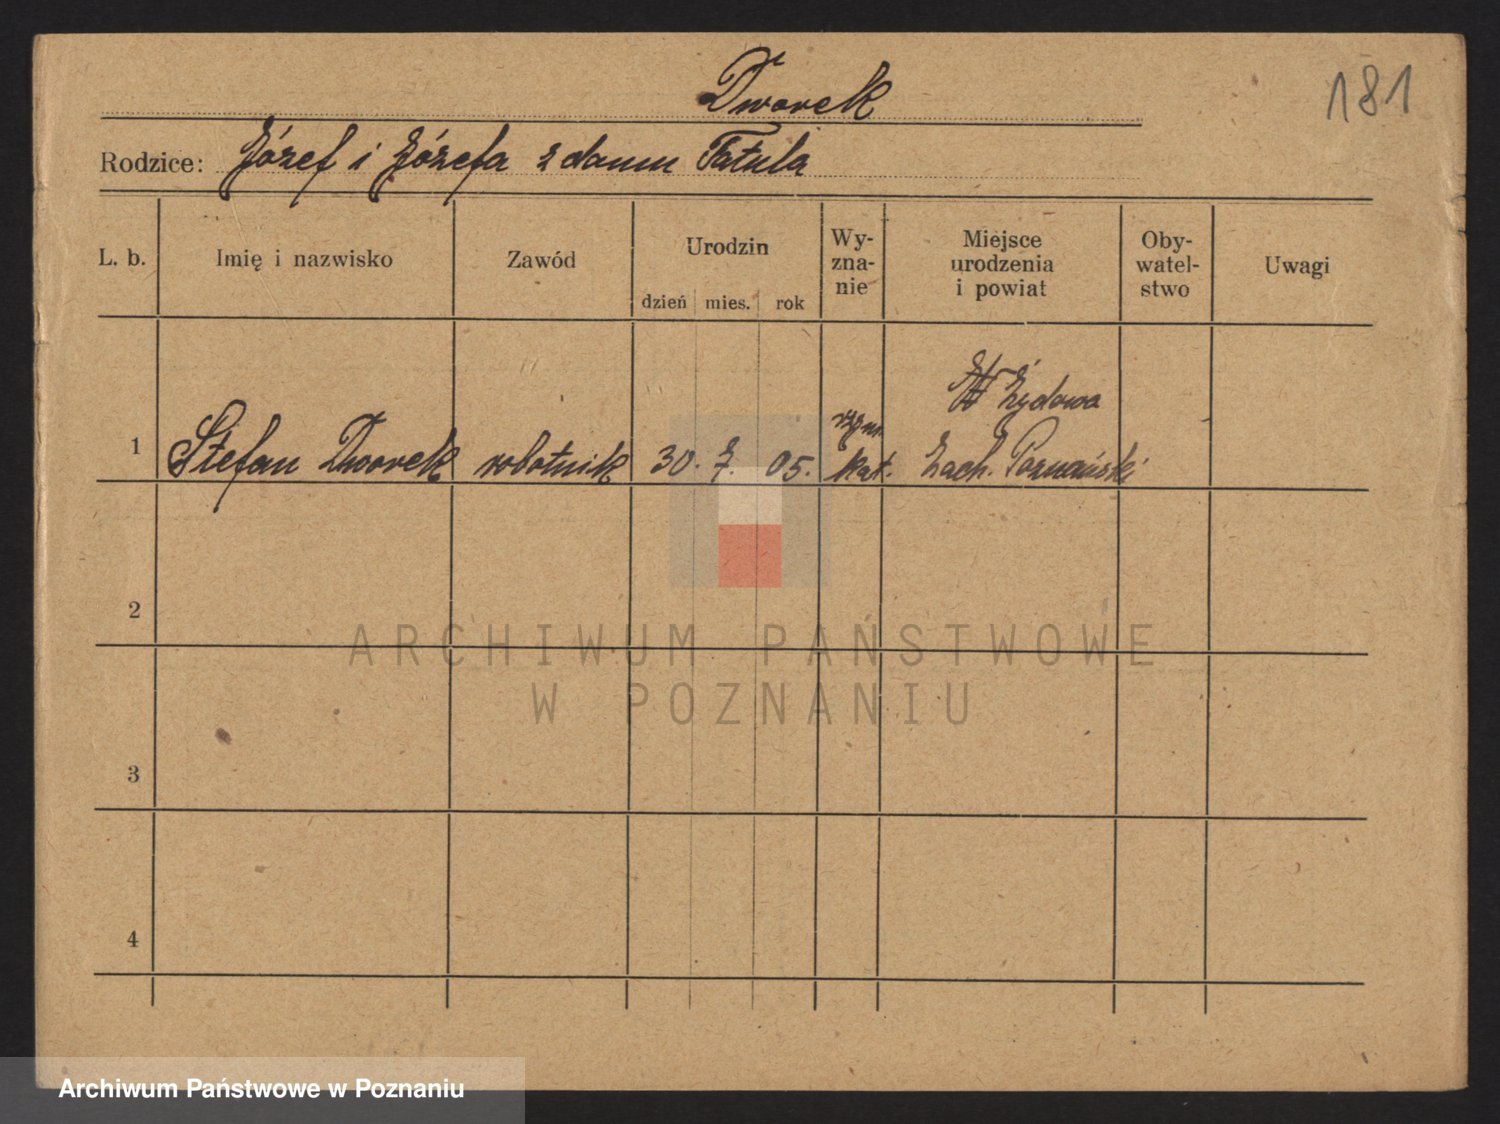 Dworek
181
Rodzice: Józef i Józefa z domu Fatula
L. b.
Imię i nazwisko
Zawód
Urodzin
dzień mies. rok
Wy-
zna-
nie
Miejsce
urodzenia
i powiat
Oby-
watel-
stwo
Uwagi
1 Stefan Dworek robotnik 30. 7. 05. rzym. kat. Żydowo Zach. Poznański
2
3
4
ARCHIWUM PAŃSTWOWE
W POZNANIU
Archiwum Państwowe w Poznaniu